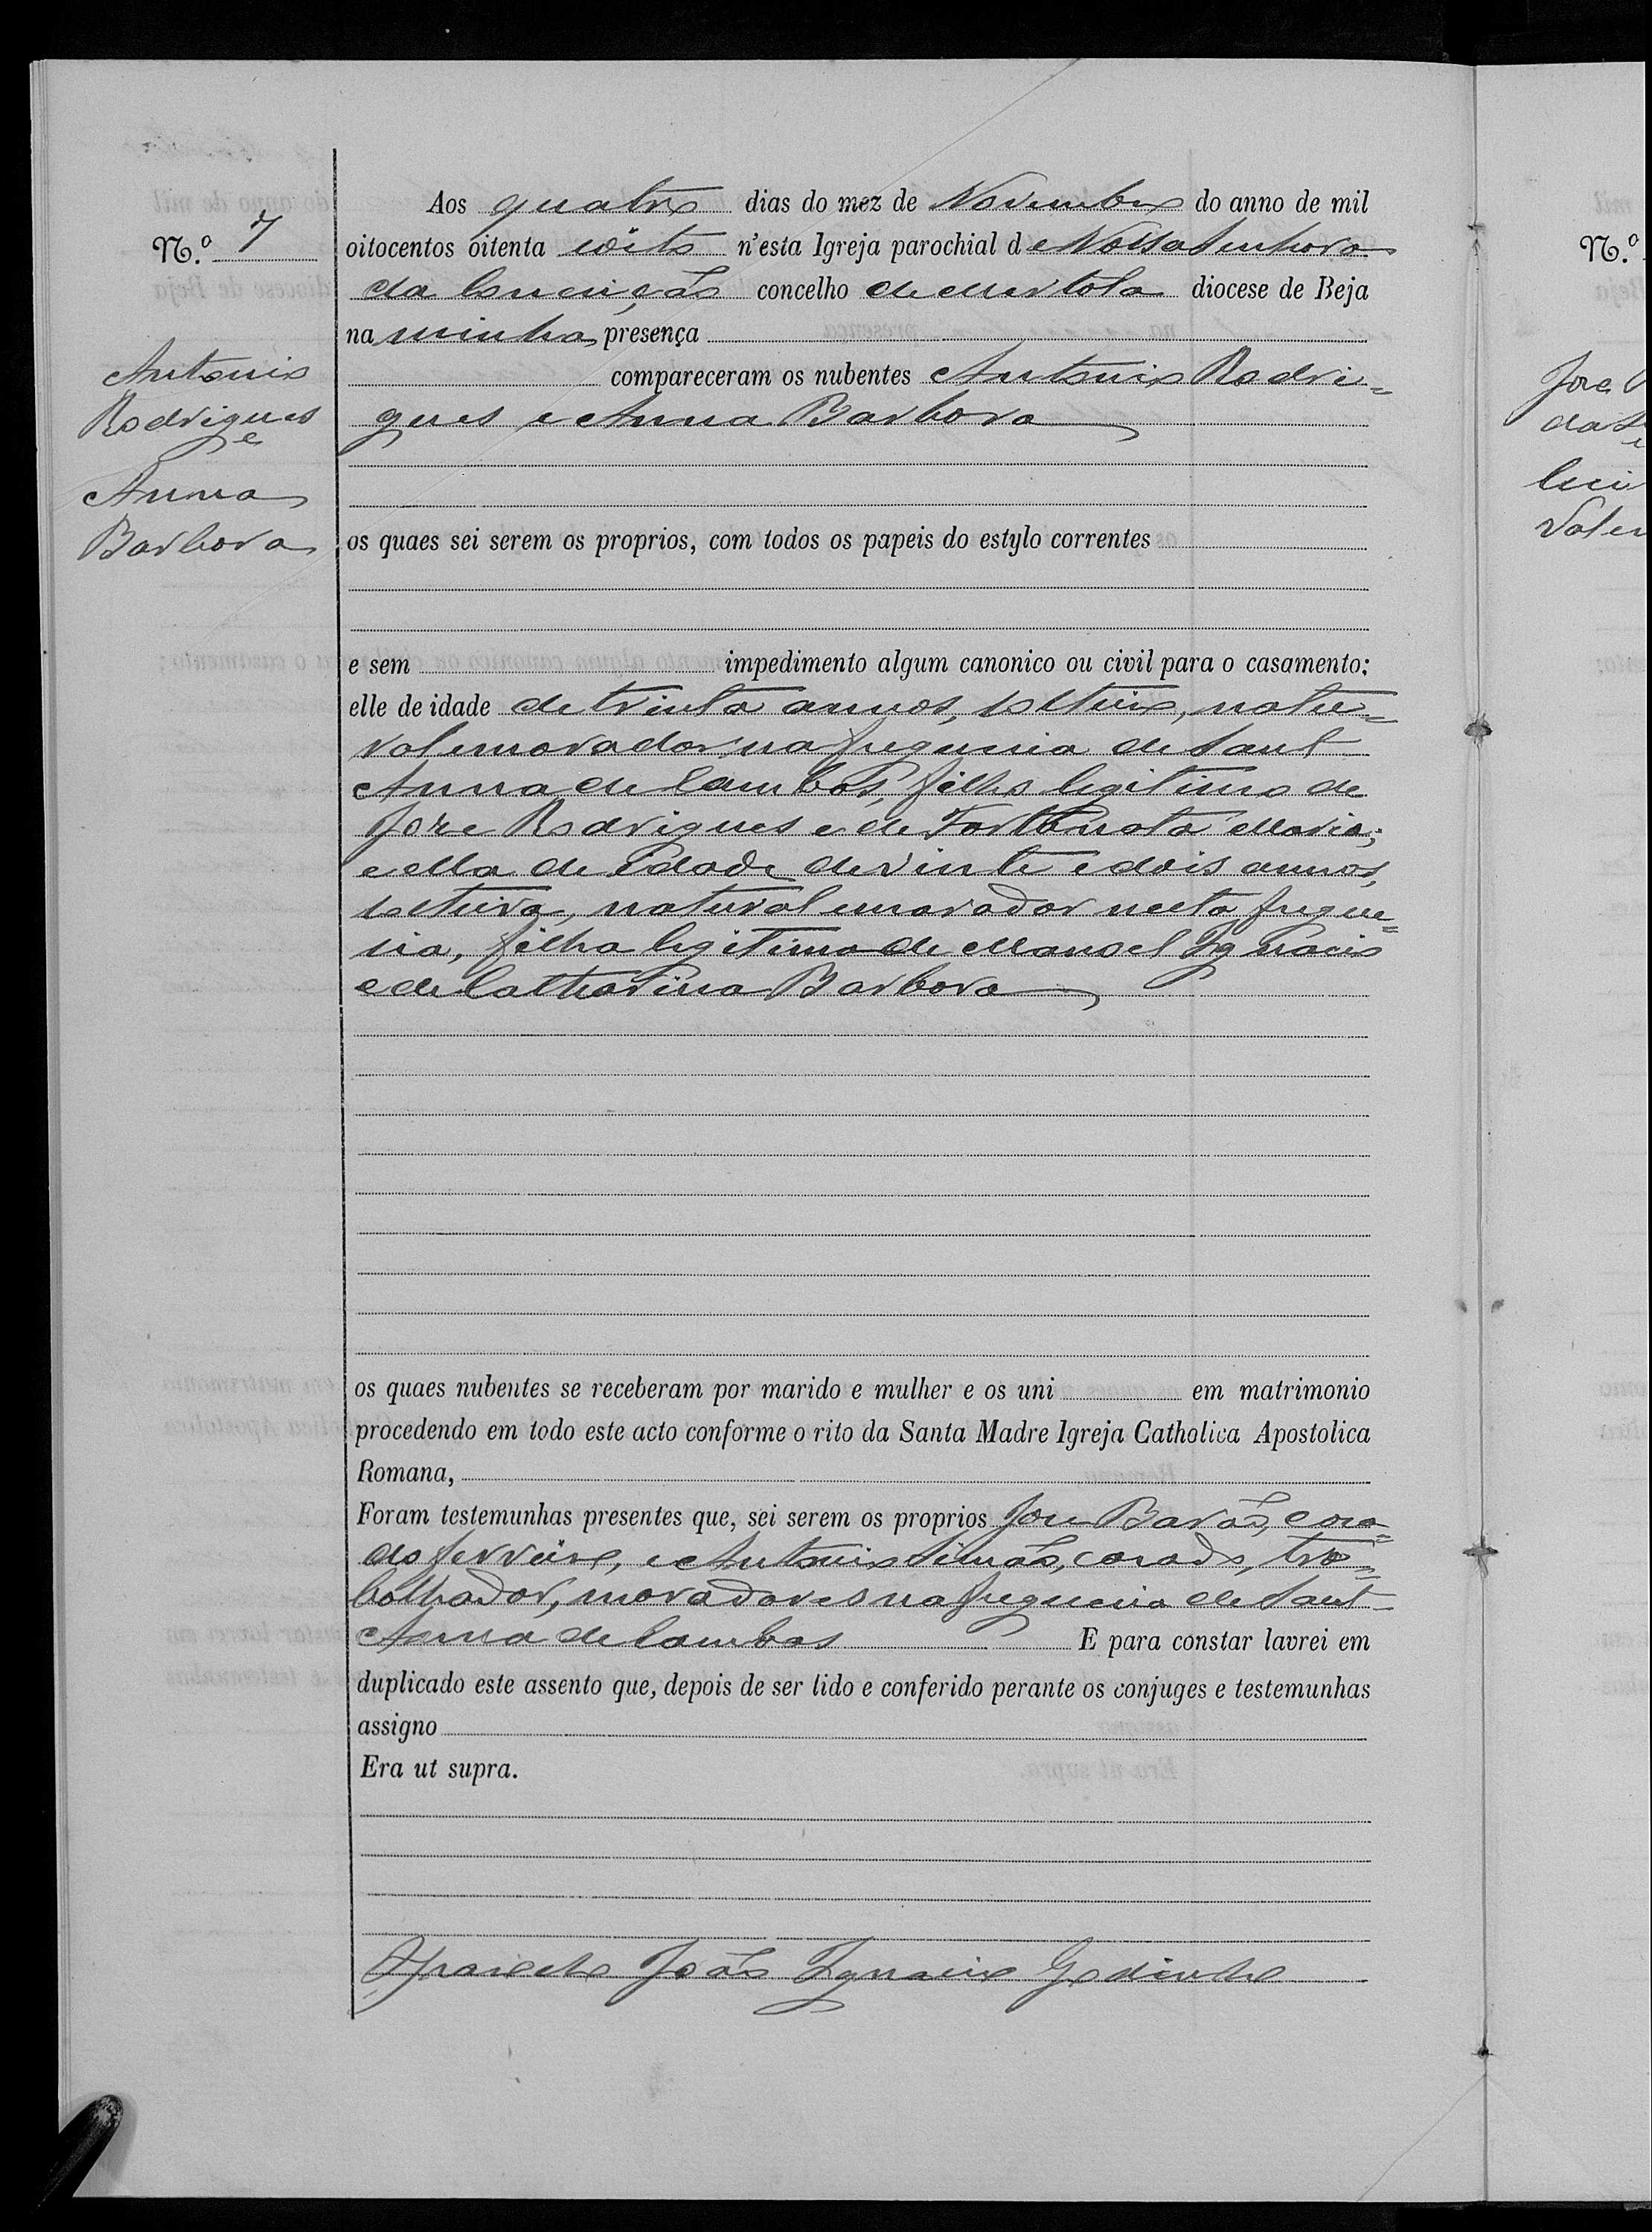 N.º 7
Antonio
Rodrigues
e
Anna
Barbora
Aos quatro dias do mez de Novembro do anno de mil
oitocentos oitenta e oito n'esta Igreja parochial de Nossa Senhora
da Conceição concelho de Mertola diocese de Beja
na minha presença
compareceram os nubentes Antonio Rodri=
gues e Anna Barbora
os quaes sei serem os proprios, com todos os papeis do estylo correntes
e sem impedimento algum canonico ou civil para o casamento;
elle de idade de trinta annos, solteiro, natu=
ral e morador na freguesia de Sant
Anna de Cambas, filho legitimo de
Jose Rodrigues e de Fortunata Maria;
e ella de idade de vinte e dois annos,
solteira, natural e morador nesta fregue=
sia, filha legitima de Manoel Ignacio
e de Catharina Barbora
os quaes nubentes se receberam por marido e mulher e os uni em matrimonio
procedendo em todo este acto conforme o rito da Santa Madre Igreja Catholica Apostolica
Romana,
Foram testemunhas presentes que, sei serem os proprios Jose Barão, casa=
do ferreiro, e Antonio Simão, casado, tra=
balhador, moradores na freguesia de Sant
Anna de Cambas E para constar lavrei em
duplicado este assento que, depois de ser lido e conferido perante os conjuges e testemunhas
assigno
Era ut supra.
O Parocho João Ignacio Godinho
N.º
Jose
da